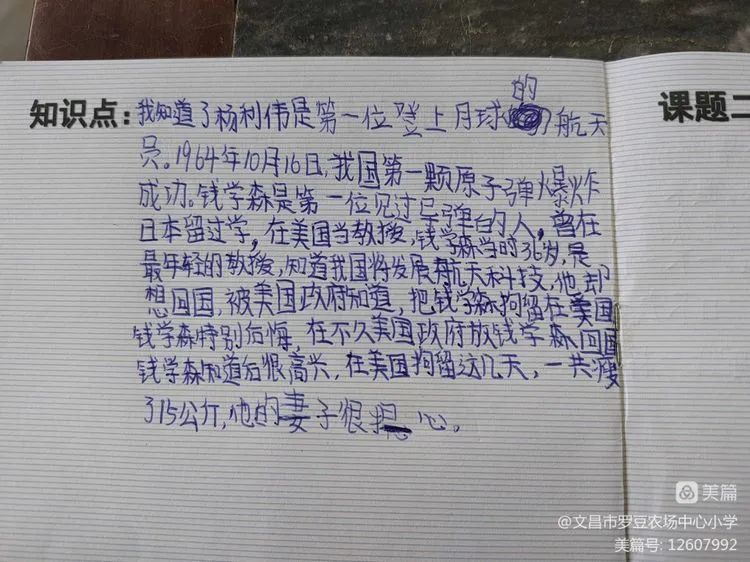 知识点:我知道了杨利伟是第一位登上月球的航天
员。1964年10月16日,我国第一颗原子弹爆炸
成功。钱学森是第一位见过导弹的人,曾在
日本留过学,在美国当教授,钱学森当时36岁,是
最年轻的教授,知道我国将发展航天科技,他却
想回国,被美国政府知道,把钱学森拘留在美国
钱学森特别后悔,在不久美国政府放钱学森回国
钱学森知道后很高兴,在美国拘留这几天,一共瘦
了15公斤,他的妻子很担心。
课题二
美篇
@文昌市罗豆农场中心小学
美篇号: 12607992